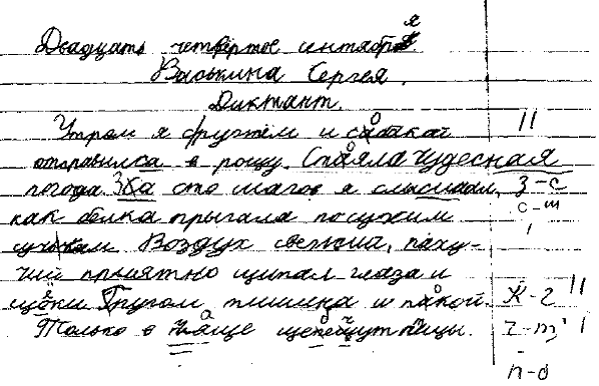 Двадцать четвёртое сентября
Васькина Сергея.
Диктант.
Утром я с другтём и сабакай
отправился в рощу. Спаяла чудесная
погода. За сто шагов я слышал,
как белка прыгала по сухим
сучькам. Воздух свежий, паху-
чий приятно щипал глаза и
щёки. Кругом тишина и пакой.
Только в чаще щебечут птицы.
II
З-с
с-ш
I
К-г II
г-т I
п-д